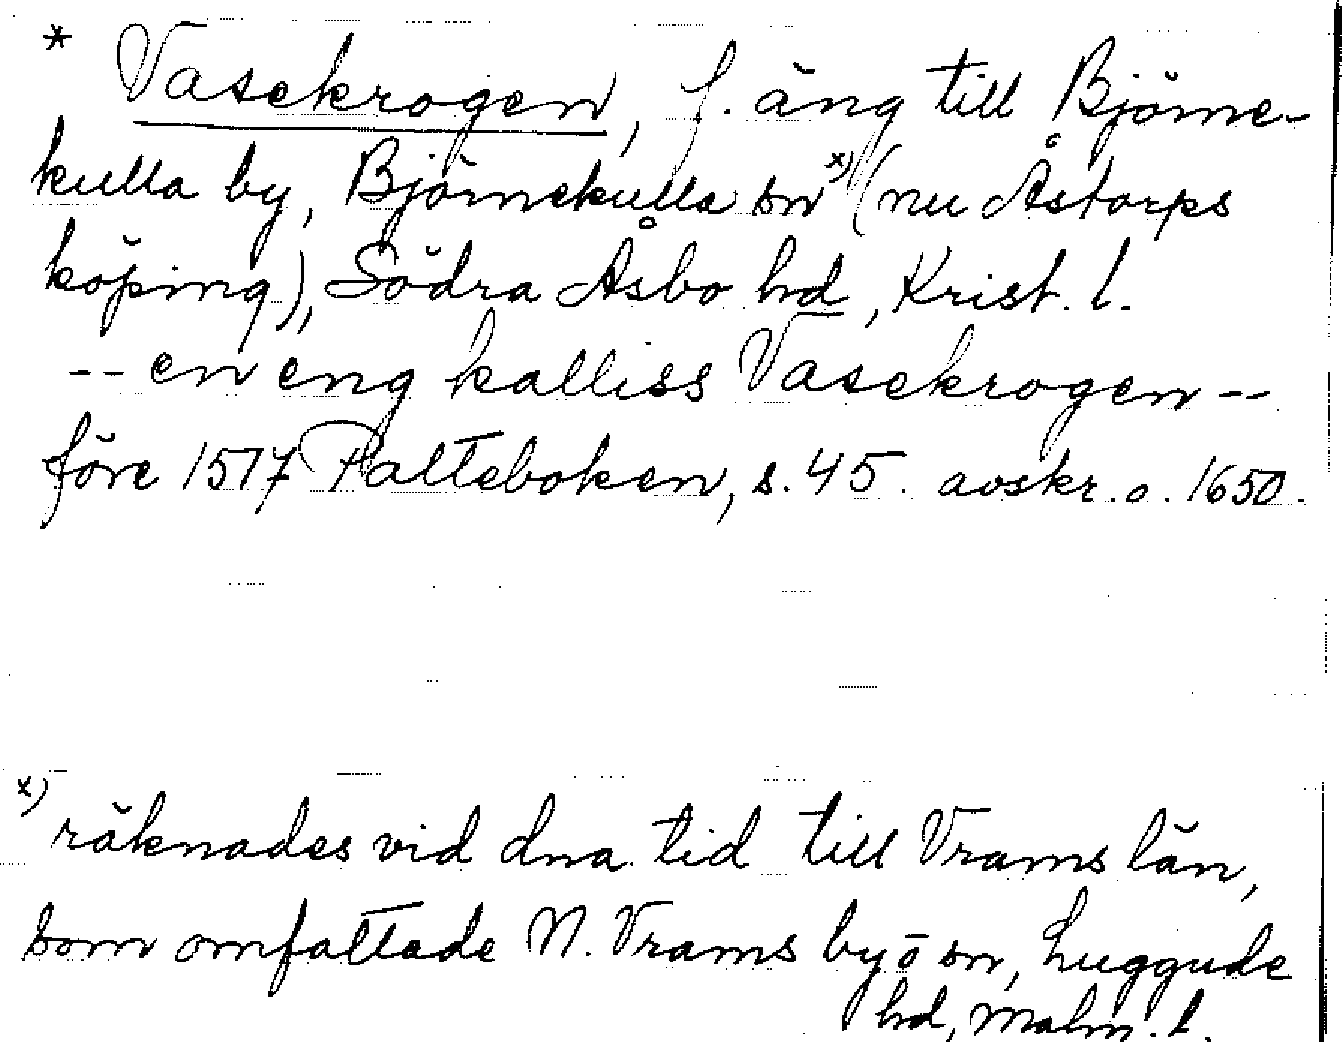 * Vasekrogen, f. äng till Björne-
kulla by, Björnekulla sn x) (nu Åstorps
köping), Södra Åsbo hd, Krist. l.
-- en eng kalliss Vasekrogen --
före 1517 Palteboken, s. 45. avskr. o. 1650.
x) räknades vid dna tid till Vrams län,
som omfattade N. Vrams by o sn, Luggude
hd, Malm. l.